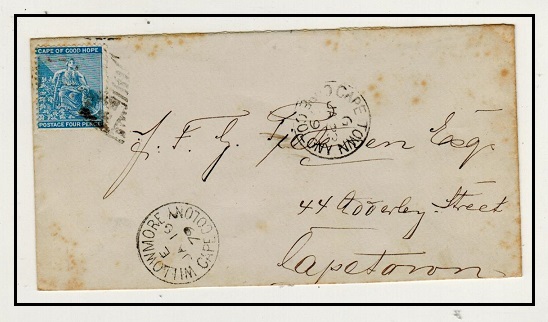 CAPE OF GOOD HOPE
POSTAGE FOUR PENCE
CAPE TOWN
J. F. G. Esq.
44 Adderley Street
Capetown
WILLOWMORE CAPE COLONY